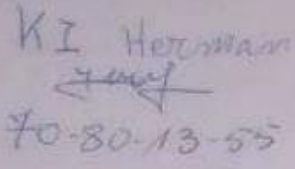 KI Herman
70-80-13-55